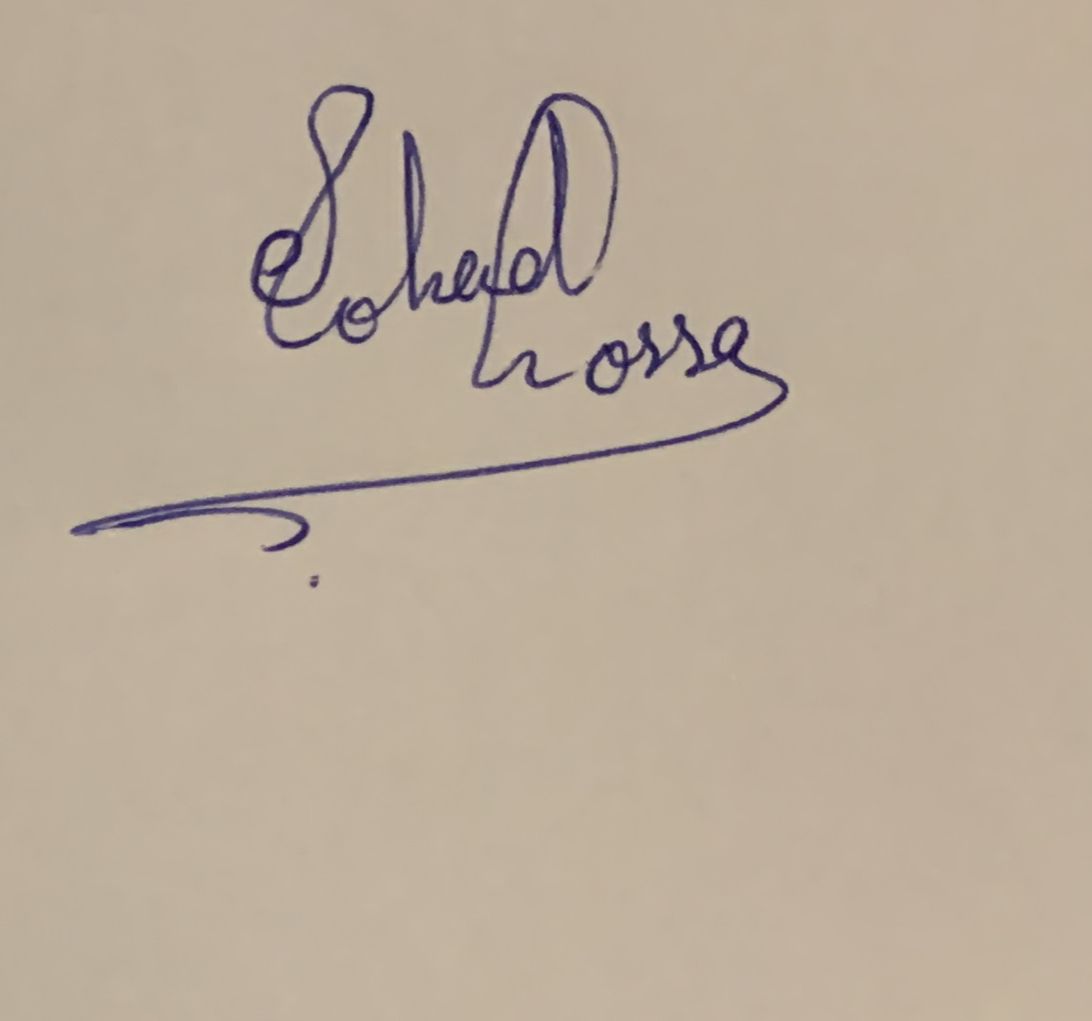 Sohad
Hossa